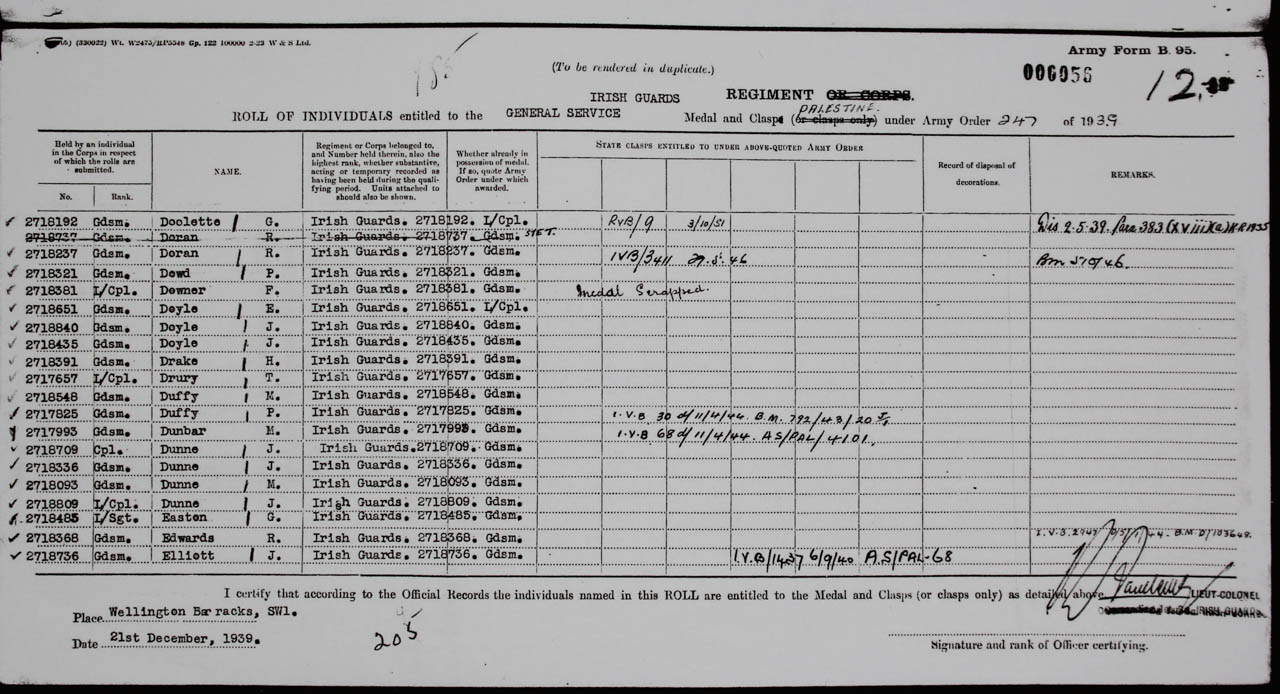 (330022) Wt. W2475/RP5548 Gp. 122 100000 2-23 W & S Ltd.
Army Form B. 95.
(To be rendered in duplicate.)
006056
12.
IRISH GUARDS REGIMENT OR CORPS.
PALESTINE.
ROLL OF INDIVIDUALS entitled to the GENERAL SERVICE Medal and Clasps (or clasps only) under Army Order 247 of 1939
Held by an individual in the Corps in respect of which the rolls are submitted.
No. Rank.
NAME.
Regiment or Corps belonged to, and Number held therein, also the highest rank, whether substantive, acting or temporary recorded as having been held during the qualifying period. Units attached to should also be shown.
Whether already in possession of medal. If so, quote Army Order under which awarded.
STATE CLASPS ENTITLED TO UNDER ABOVE-QUOTED ARMY ORDER
Record of disposal of decorations.
REMARKS.
2718192 Gdsm. Doolette G. Irish Guards. 2718192. L/Cpl. RVB/9 3/10/51 Dis 2.5.39. Para 383 (XViii)(a) KR 1935
2718737 Gdsm. Doran R. Irish Guards. 2718737. Gdsm. STET.
2718237 Gdsm. Doran R. Irish Guards. 2718237. Gdsm. IVB/3411 27.5.46
2718321 Gdsm. Dowd P. Irish Guards. 2718321. Gdsm.
2718381 L/Cpl. Downer F. Irish Guards. 2718381. Gdsm. Medal Scrapped.
2718651 Gdsm. Doyle E. Irish Guards. 2718651. L/Cpl.
2718840 Gdsm. Doyle J. Irish Guards. 2718840. Gdsm.
2718435 Gdsm. Doyle J. Irish Guards. 2718435. Gdsm.
2718391 Gdsm. Drake H. Irish Guards. 2718391. Gdsm.
2717657 L/Cpl. Drury T. Irish Guards. 2717657. Gdsm.
2718548 Gdsm. Duffy M. Irish Guards. 2718548. Gdsm.
2717825 Gdsm. Duffy P. Irish Guards. 2717825. Gdsm. I.V.B 30 d/11/4/44. B.M. 792/43/20
2717993 Gdsm. Dunbar M. Irish Guards. 2717993. Gdsm. I.V.B 68 d/11/4/44. AS/PAL/4101.
2718709 Cpl. Dunne J. Irish Guards. 2718709. Gdsm.
2718336 Gdsm. Dunne J. Irish Guards. 2718336. Gdsm.
2718093 Gdsm. Dunne M. Irish Guards. 2718093. Gdsm.
2718809 L/Cpl. Dunne J. Irish Guards. 2718809. Gdsm.
2718485 L/Sgt. Easton G. Irish Guards. 2718485. Gdsm.
2718368 Gdsm. Edwards R. Irish Guards. 2718368. Gdsm. I.V.B. 2947
2718736 Gdsm. Elliott J. Irish Guards. 2718736. Gdsm. I.V.B/1437 6/9/40 A.S/PAL-68
I certify that according to the Official Records the individuals named in this ROLL are entitled to the Medal and Clasps (or clasps only) as detailed above
LIEUT-COLONEL
IRISH GUARDS
Place Wellington Barracks, SW1.
Date 21st December, 1939.
205
Signature and rank of Officer certifying.